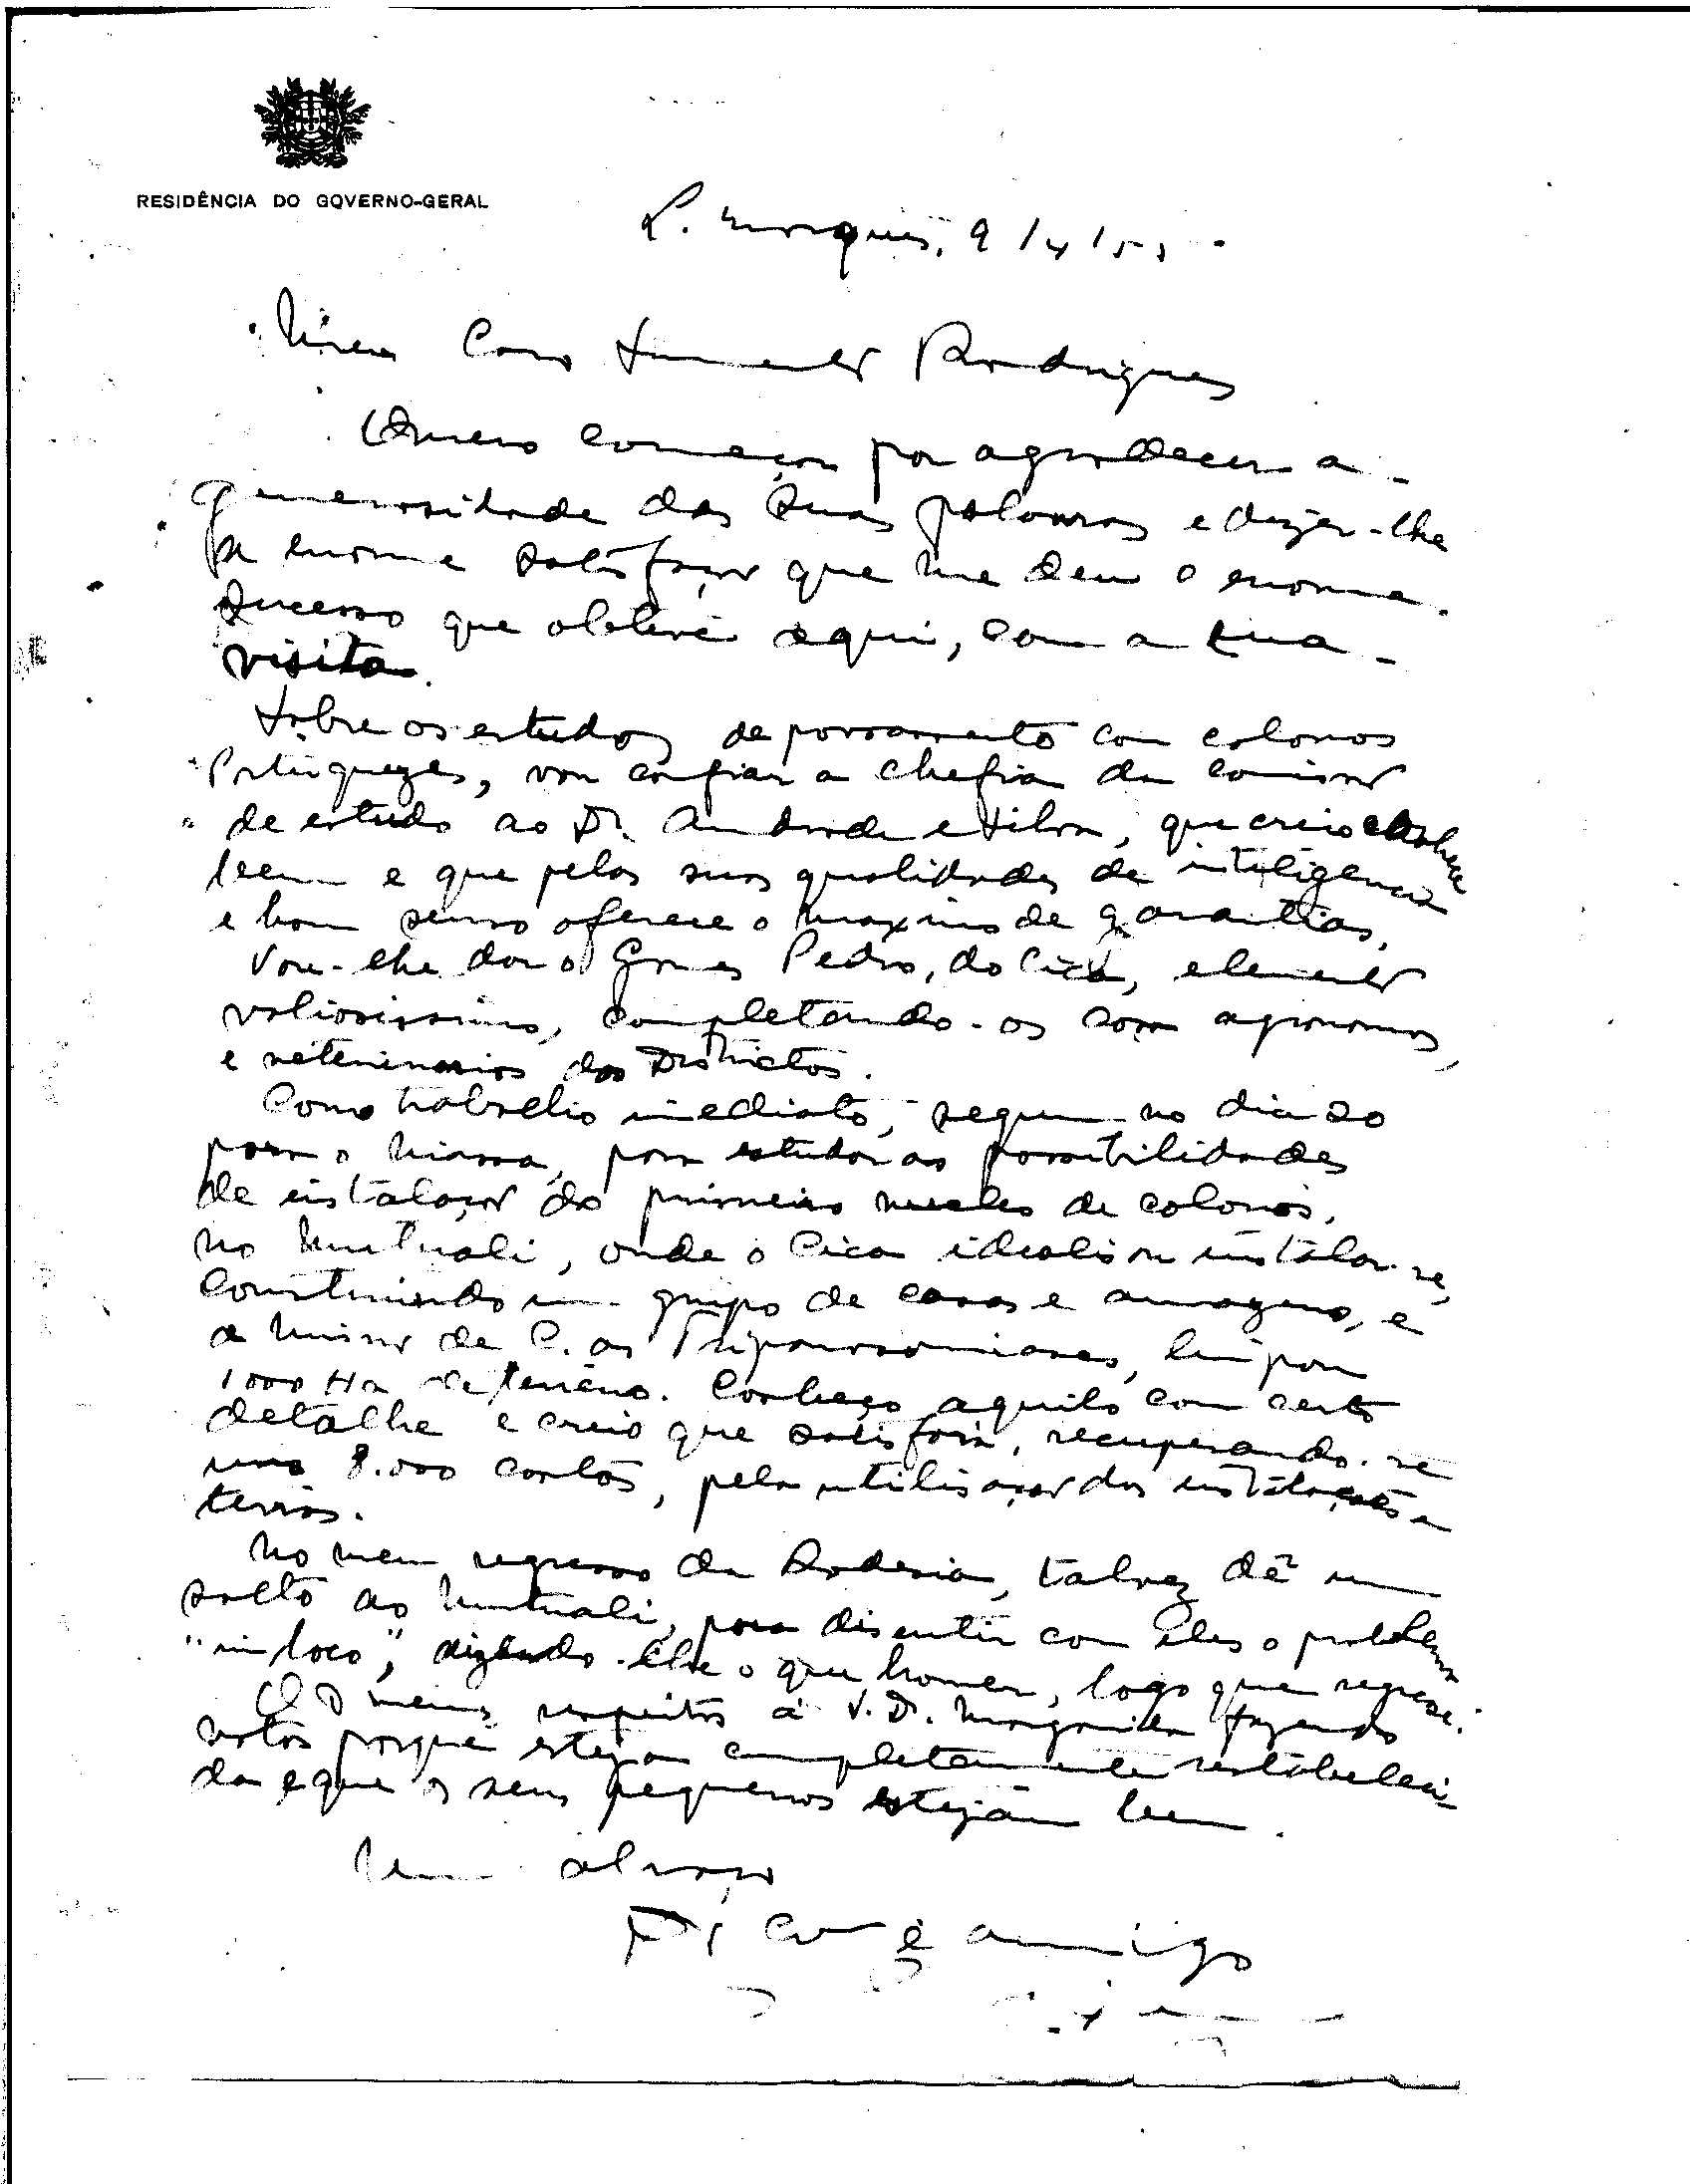 RESIDÊNCIA DO GOVERNO-GERAL
L. Marques, 9/4/55
Meu Caro Sarmento Rodrigues
Quero começar por agradecer a
generosidade das suas palavras e dizer-lhe
a enorme satisfação que me deu o enorme
sucesso que obteve aqui, com a sua
visita.
Sobre os estudos de povoamento com colonos
Portuguezes, vou confiar a chefia da comissão
de estudo ao Dr. Andrade e Silva, que creio conhece
bem e que pelas suas qualidades de inteligencia
e bom senso oferece o maximo de garantias.
Vou-lhe dar o Gomes Pedro, do Cica, elemento
valiosissimo, completando-os com agronomos
e veterinarios dos Districtos.
Como trabalho imediato, seguem no dia 20
para o Niassa, para estudar as possibilidades
de instalação do primeiro nucleo de colonos,
no Mutuali, onde o Cica idealisou instalar-se,
construindo um grupo de casas e armazens, e
a Missão de C. as Tripanosomiases, limpou
1000 Ha de terreno. Conheço aquilo com certo
detalhe e creio que satisfará, recuperando-se
uns 8.000 contos, pela utilisação das instalações e
terras.
No meu regresso da Rodesia, talvez dê um
salto ao Mutuali, para discutir com eles o problema
"in loco", dizendo-lhe o que houver, logo que regresse.
Os meus respeitos á S. D. Margarida fazendo
votos porque esteja completamente restabeleci-
da e que os seus pequenos estejam bem.
Um abraço
Do amigo